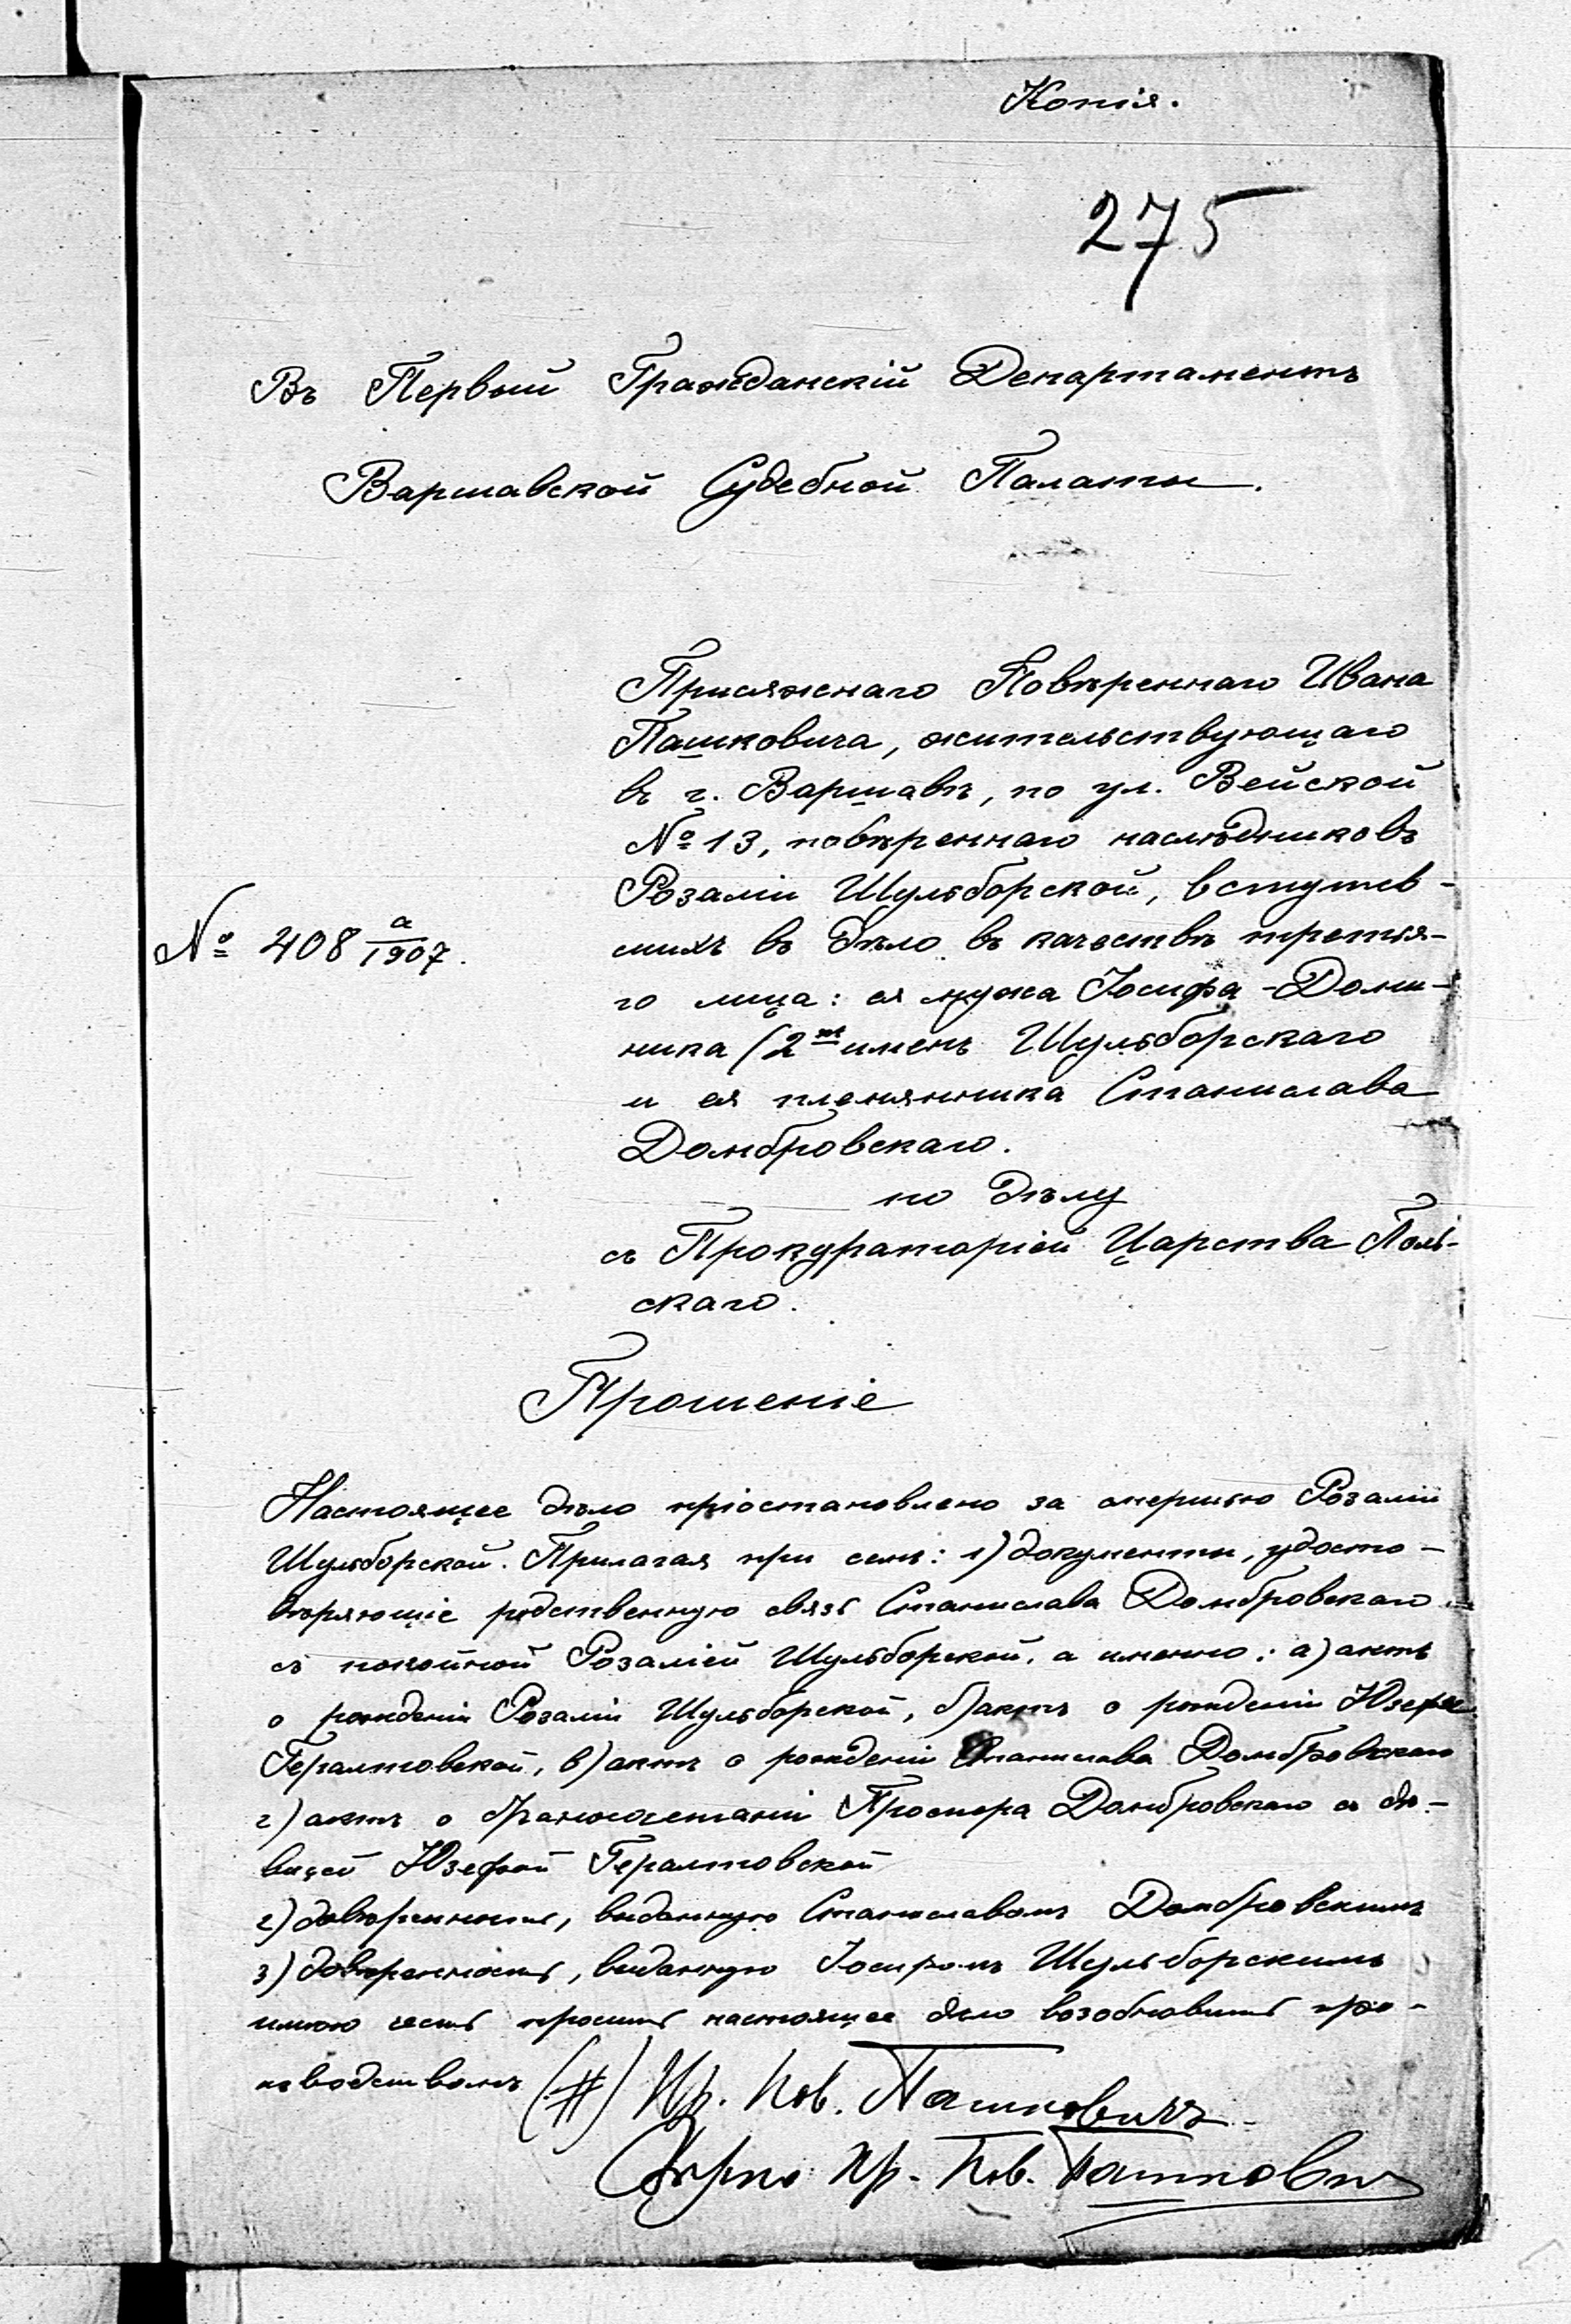 Копія.
275
Въ Первый Гражданскій Департаментъ
Варшавской Судебной Палаты.
Присяжнаго Повѣреннаго Ивана
Пашковича, жительствующаго
въ г. Варшавѣ, по ул. Вейской
№ 13, повѣреннаго наслѣдниковъ
Розаліи Шульборской, вступив-
шихъ въ дѣло въ качествѣ третья-
го лица: ея мужа Іосифа-Доми-
ника (2хъ именъ Шульборскаго
и ея племянника Станислава
Домбровскаго.
№ 408 а/1907.
по дѣлу
съ Прокураторіей Царства Поль-
скаго.
Прошеніе
Настоящее дѣло пріостановлено за смертью Розаліи
Шульборской. Прилагая при семъ: 1) документы, удосто-
вѣряющіе родственную связь Станислава Домбровскаго
съ покойной Розаліей Шульборской, а именно: а) актъ
о рожденіи Розаліи Шульборской, б) актъ о рожденіи Юзефы
Гералтовской, в) актъ о рожденіи Станислава Домбровскаго
г) актъ о бракосочетаніи Проспера Домбровскаго съ дѣ-
вицей Юзефой Гералтовской
2) довѣренность, выданную Станиславомъ Домбровскимъ
3) довѣренность, выданную Іосифомъ Шульборскимъ
имѣю честь просить настоящее дѣло возобновить про-
изводствомъ (#) Пр. Пов. Пашковичъ
Вѣрно Пр. Пов. Пашкович